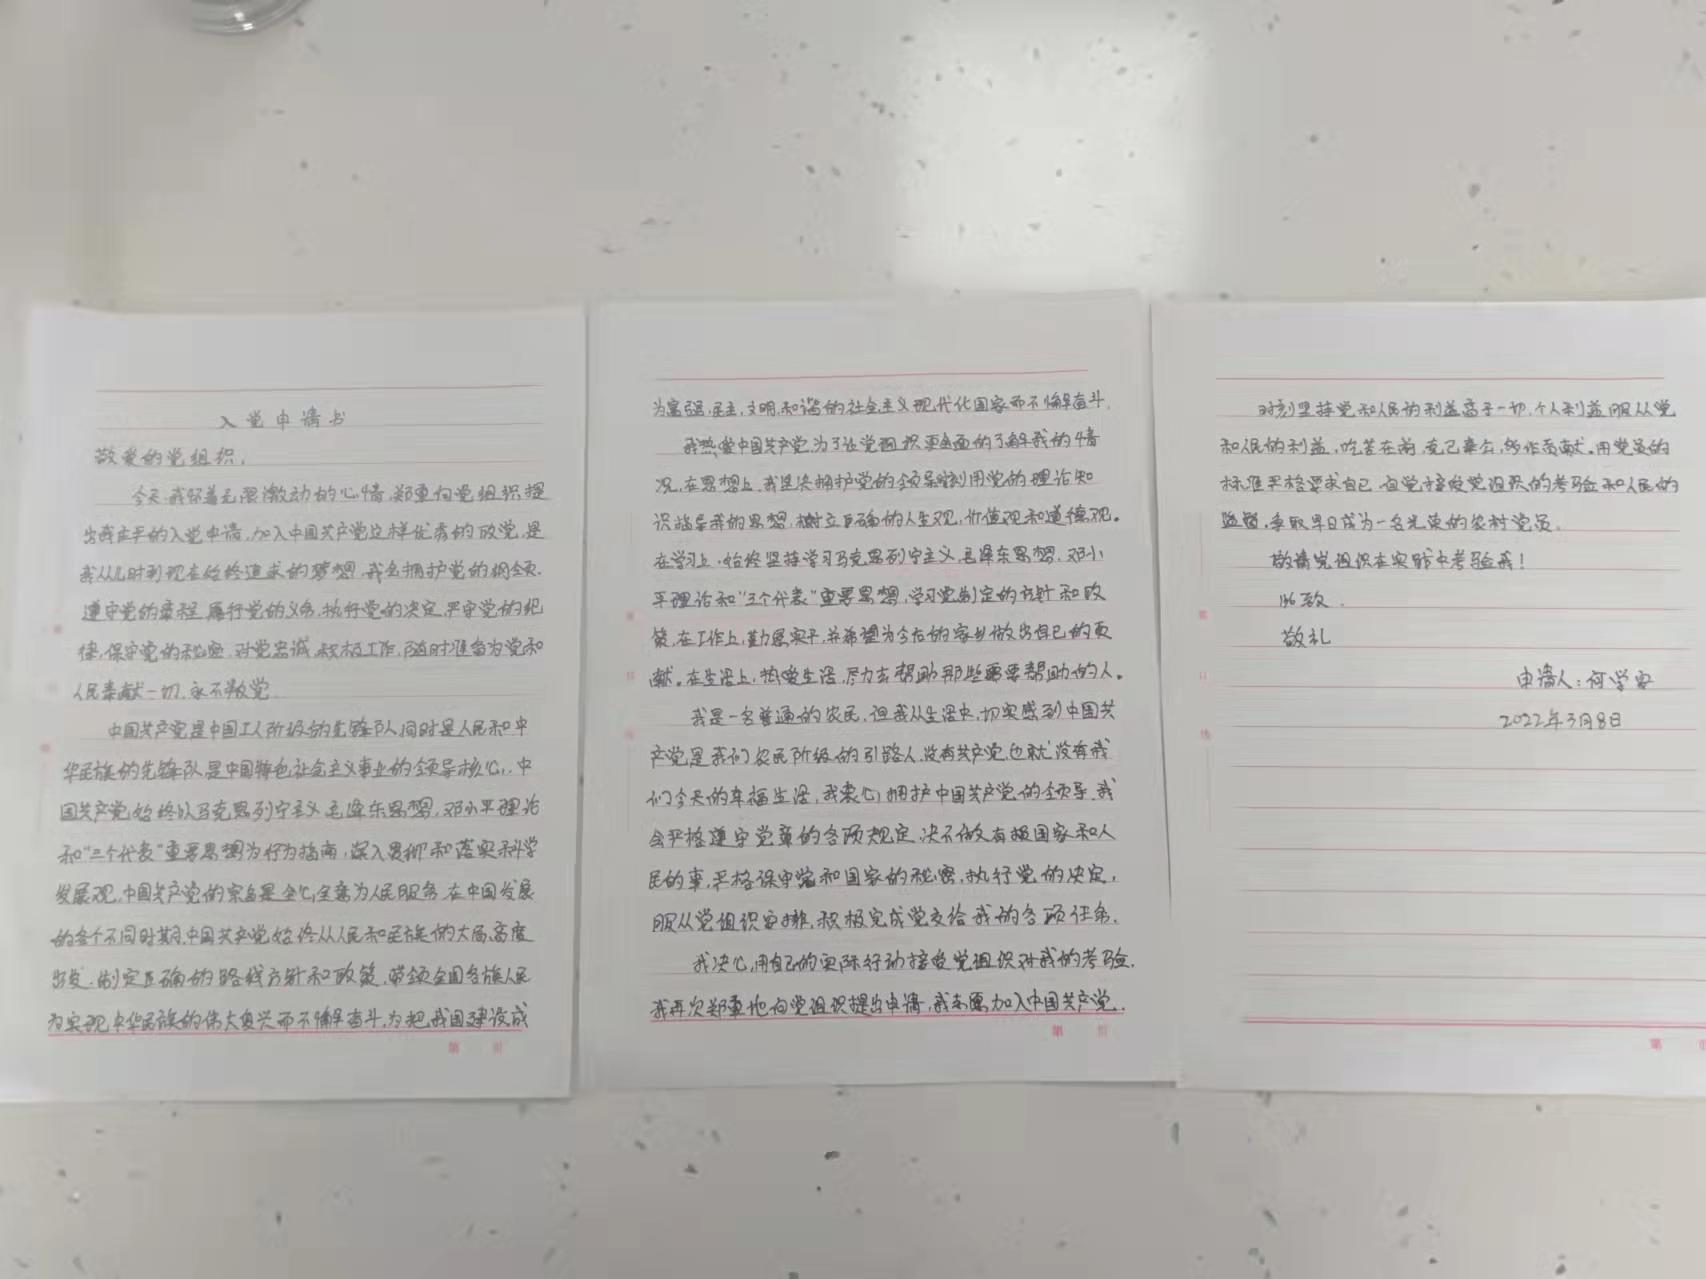 入党申请书
敬爱的党组织,
今天,我怀着无限激动的心情,郑重向党组织提
出我庄平的入党申请,加入中国共产党这样优秀的政党,是
我从儿时到现在始终追求的梦想,我会拥护党的纲领.
遵守党的章程,履行党的义务,执行党的决定,严守党的纪
律,保守党的秘密,对党忠诚,积极工作,随时准备为党和
人民奉献一切,永不叛党.
中国共产党是中国工人阶级的先锋队,同时是人民和中
华民族的先锋队,是中国特色社会主义事业的领导核心,中
国共产党始终以马克思列宁主义,毛泽东思想,邓小平理论
和“三个代表”重要思想为行为指南,深入贯彻和落实科学
发展观,中国共产党的宗旨是全心全意为人民服务,在中国发展
的各个不同时期,中国共产党始终从人民和民族的大局,高度
出发,制定正确的路线方针和政策,带领全国各族人民
为实现中华民族的伟大复兴而不懈奋斗,为把我国建设成
为富强,民主,文明,和谐的社会主义现代化国家而不懈奋斗.
我热爱中国共产党,为了让党组织更全面的了解我的情
况,在思想上,我坚决拥护党的领导,时刻用党的理论知
识指导我的思想,树立正确的人生观,价值观和道德观。
在学习上,始终坚持学习马克思列宁主义,毛泽东思想,邓小
平理论和“三个代表”重要思想,学习党制定的方针和政
策,在工作上,勤恳实干,并希望为今后的家乡做出自己的贡
献。在生活上,热爱生活,尽力去帮助那些需要帮助的人。
我是一名普通的农民,但我从生活中,切实感到中国共
产党是我们农民阶级的引路人,没有共产党,也就没有我
们今天的幸福生活,我衷心拥护中国共产党的领导,我
会严格遵守党章的各项规定,决不做有损国家和人
民的事,严格保守党和国家的秘密,执行党的决定,
服从党组织安排,积极完成党交给我的各项任务.
我决心,用自己的实际行动接受党组织对我的考验.
我再次郑重地向党组织提出申请,我志愿加入中国共产党.
时刻坚持党和人民的利益高于一切,个人利益服从党
和人民的利益,吃苦在前,克己奉公,多作贡献。用党员的
标准严格要求自己,自觉接受党组织的考验和人民的
监督,争取早日成为一名光荣的农村党员.
敬请党组织在实践中考验我!
此致.
敬礼
申请人:何学安
2022年3月8日
第 页
第 页
第